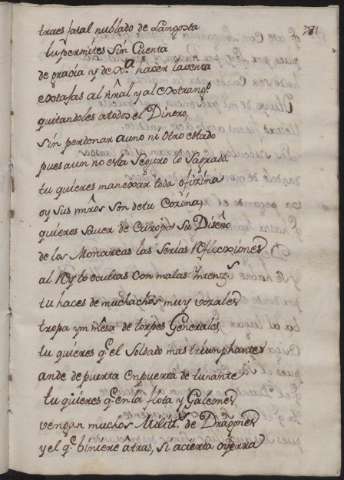 traes fatal nublado de Langosta
tu permites sin Cuenta
de gracia y de Xa. hacer la venta
estafas al nral y al extrangº
quitandoles a todos el Dinero
sin perdonar a uno ni otro estado
pues aun no esta seguro lo Sagrado
tu quieres manexar toda ofizina
oy sus mros son de tu
quieres saver de Europa su Diseño
de las Monarcas las serias Reflecxiones
al Rey lo ocultas con malas
tu haces de muchachos muy vozales
tropa ynmensa de torpes Generales
tu quieres qe el Soldado mas triumphante
ande de puerta en puerta de tunante
tu quieres qe en la flota y Galeones
vengan muchos Mill de Dragones
y el qe viniere atras, si acierta o yerra